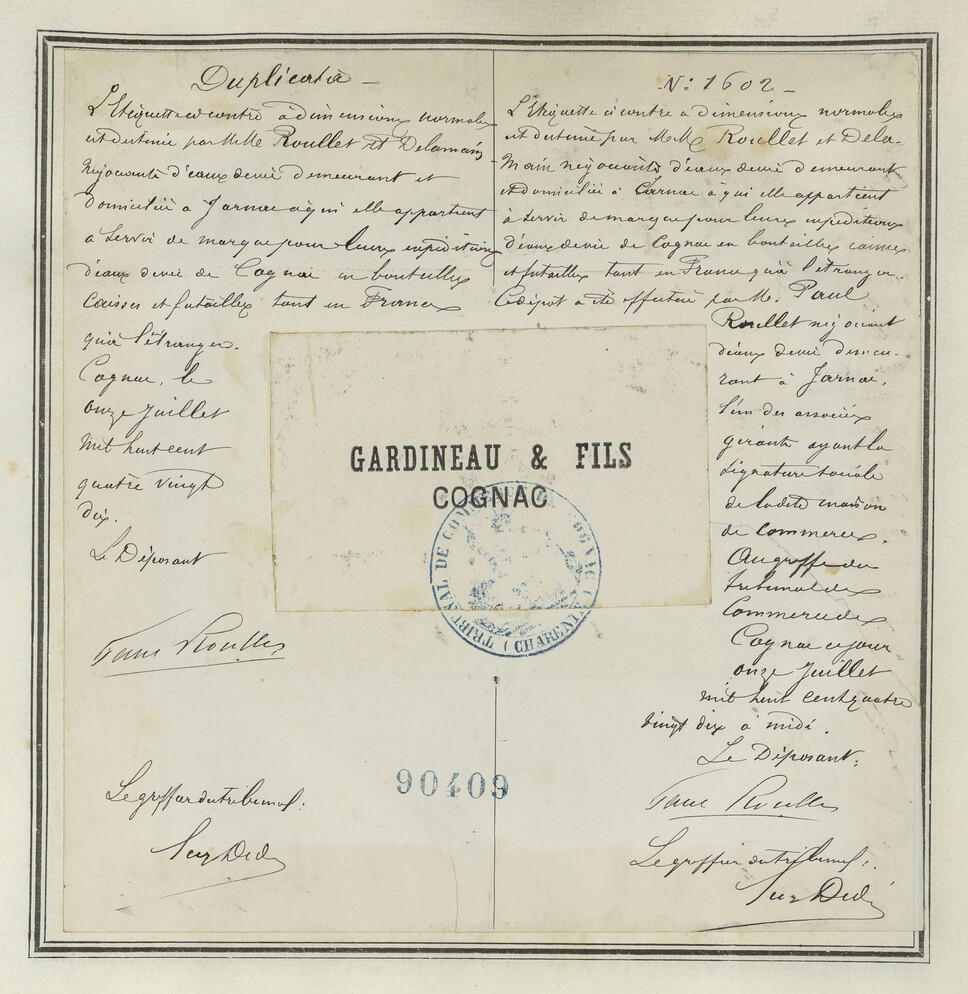 Duplicata -
L'Etiquette ci contre à dimensions normales
est destinée par MM. Roullet et Delamain
Négociants d'eaux devie demeurant et
domiciliés à Jarnac à qui elle appartient
a servir de marque pour leurs expéditions
d'eaux devie de Cognac en bouteilles
Caisses et futailles tant en France
qu'à l'étranger.
Cognac, le
onze Juillet
mil huit cent
quatre vingt
dix.
Le Déposant
Paul Roullet
Le greffier du tribunal:
N: 1602 -
L'Etiquette ci contre a dimensions normales
est destinée par MM. Roullet et Dela-
main négociants d'eaux devie demeurant
et domiciliés à Jarnac à qui elle appartient
à servir de marque pour leurs expéditions
d'eaux devie de Cognac en bouteilles caisses
et futailles tant en France qu'à l'étranger.
Ce dépot a été effectué par M. Paul
Roullet négociant
d'eaux devie demeu-
rant à Jarnac,
l'un des associés
gérants ayant la
signature sociale
de ladite maison
de commerce.
Au greffe du
tribunal de
Commerce de
Cognac ce jour
onze Juillet
mil huit cent quatre
vingt dix à midi.
Le Déposant:
Paul Roullet
Le greffier du tribunal:
GARDINEAU & FILS
COGNAC
TRIBUNAL DE COMMERCE DE COGNAC (CHARENTE)
90409